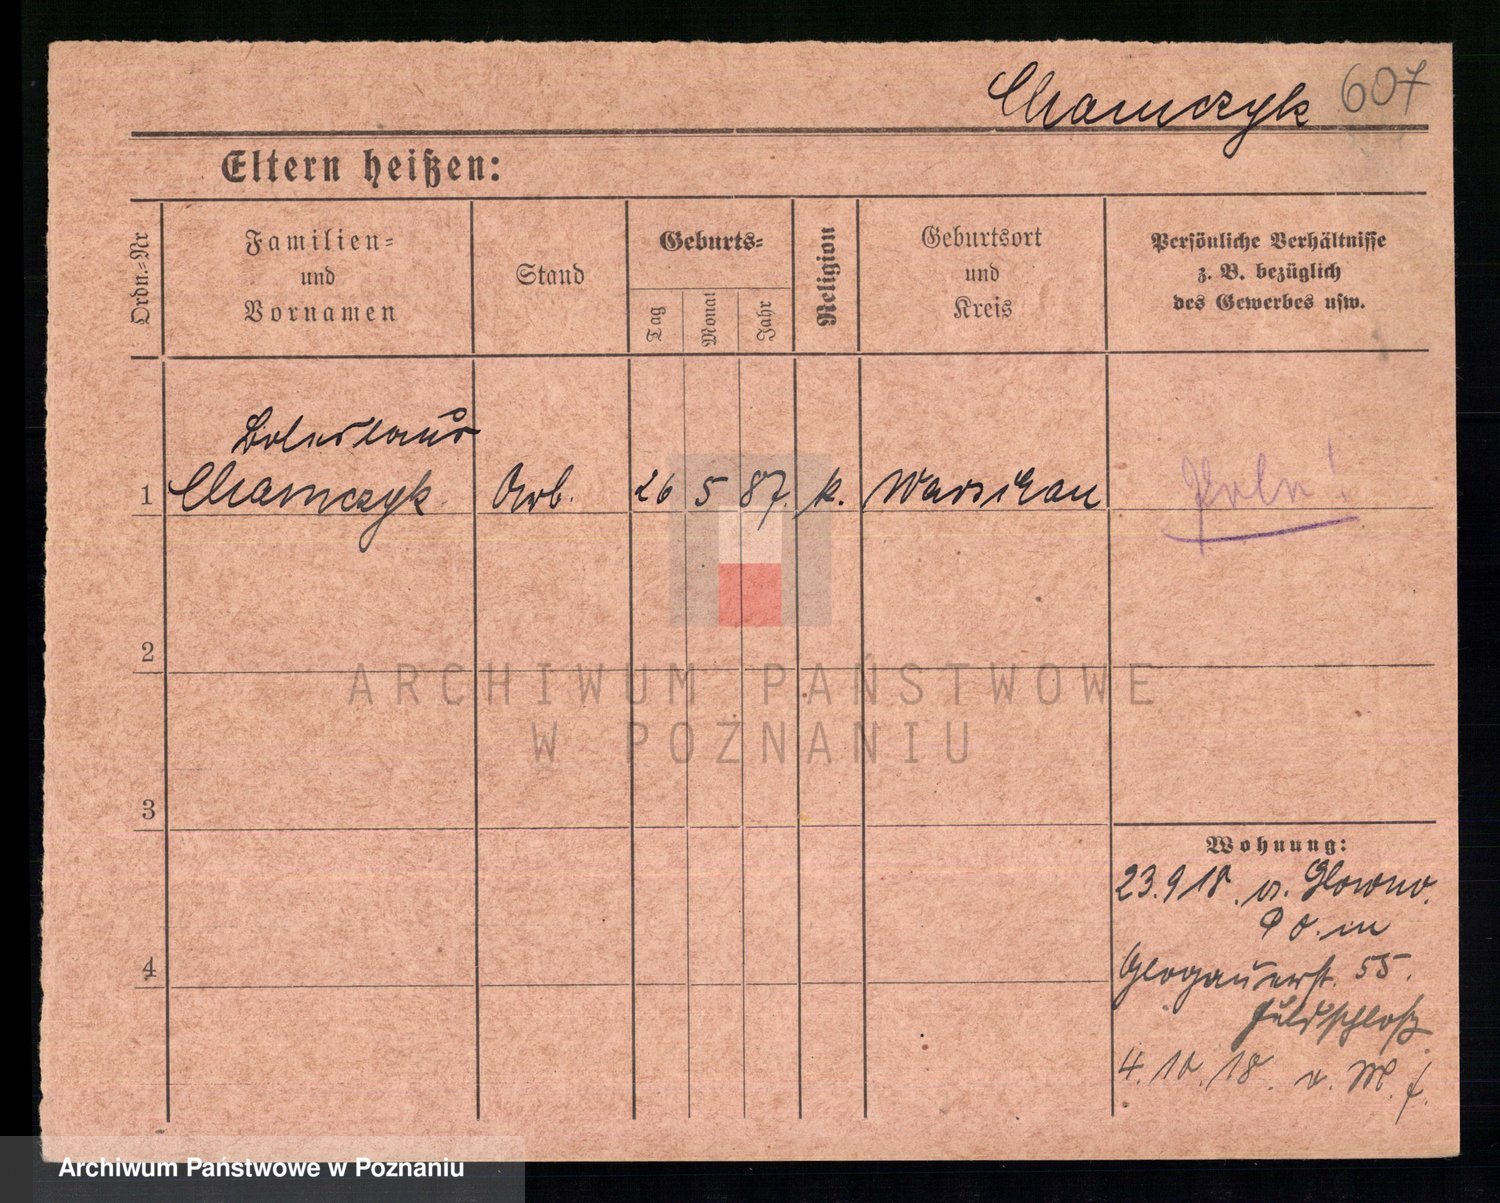 Chamczyk 607
Eltern heißen:
Ordn.=Nr
Familien=
und
Vornamen
Stand
Geburts=
Tag
Monat
Jahr
Religion
Geburtsort
und
Kreis
Persönliche Verhältnisse
z. B. bezüglich
des Gewerbes usw.
Boleslaus
1 Chamczyk Arb. 26 5 87. k. Warschau Pole!
2
3
4
Wohnung:
23.9.18. v. Glowno.
Glogauerst. 55.
Feldschloß
4.10.18. v.
ARCHIWUM PAŃSTWOWE
W POZNANIU
Archiwum Państwowe w Poznaniu